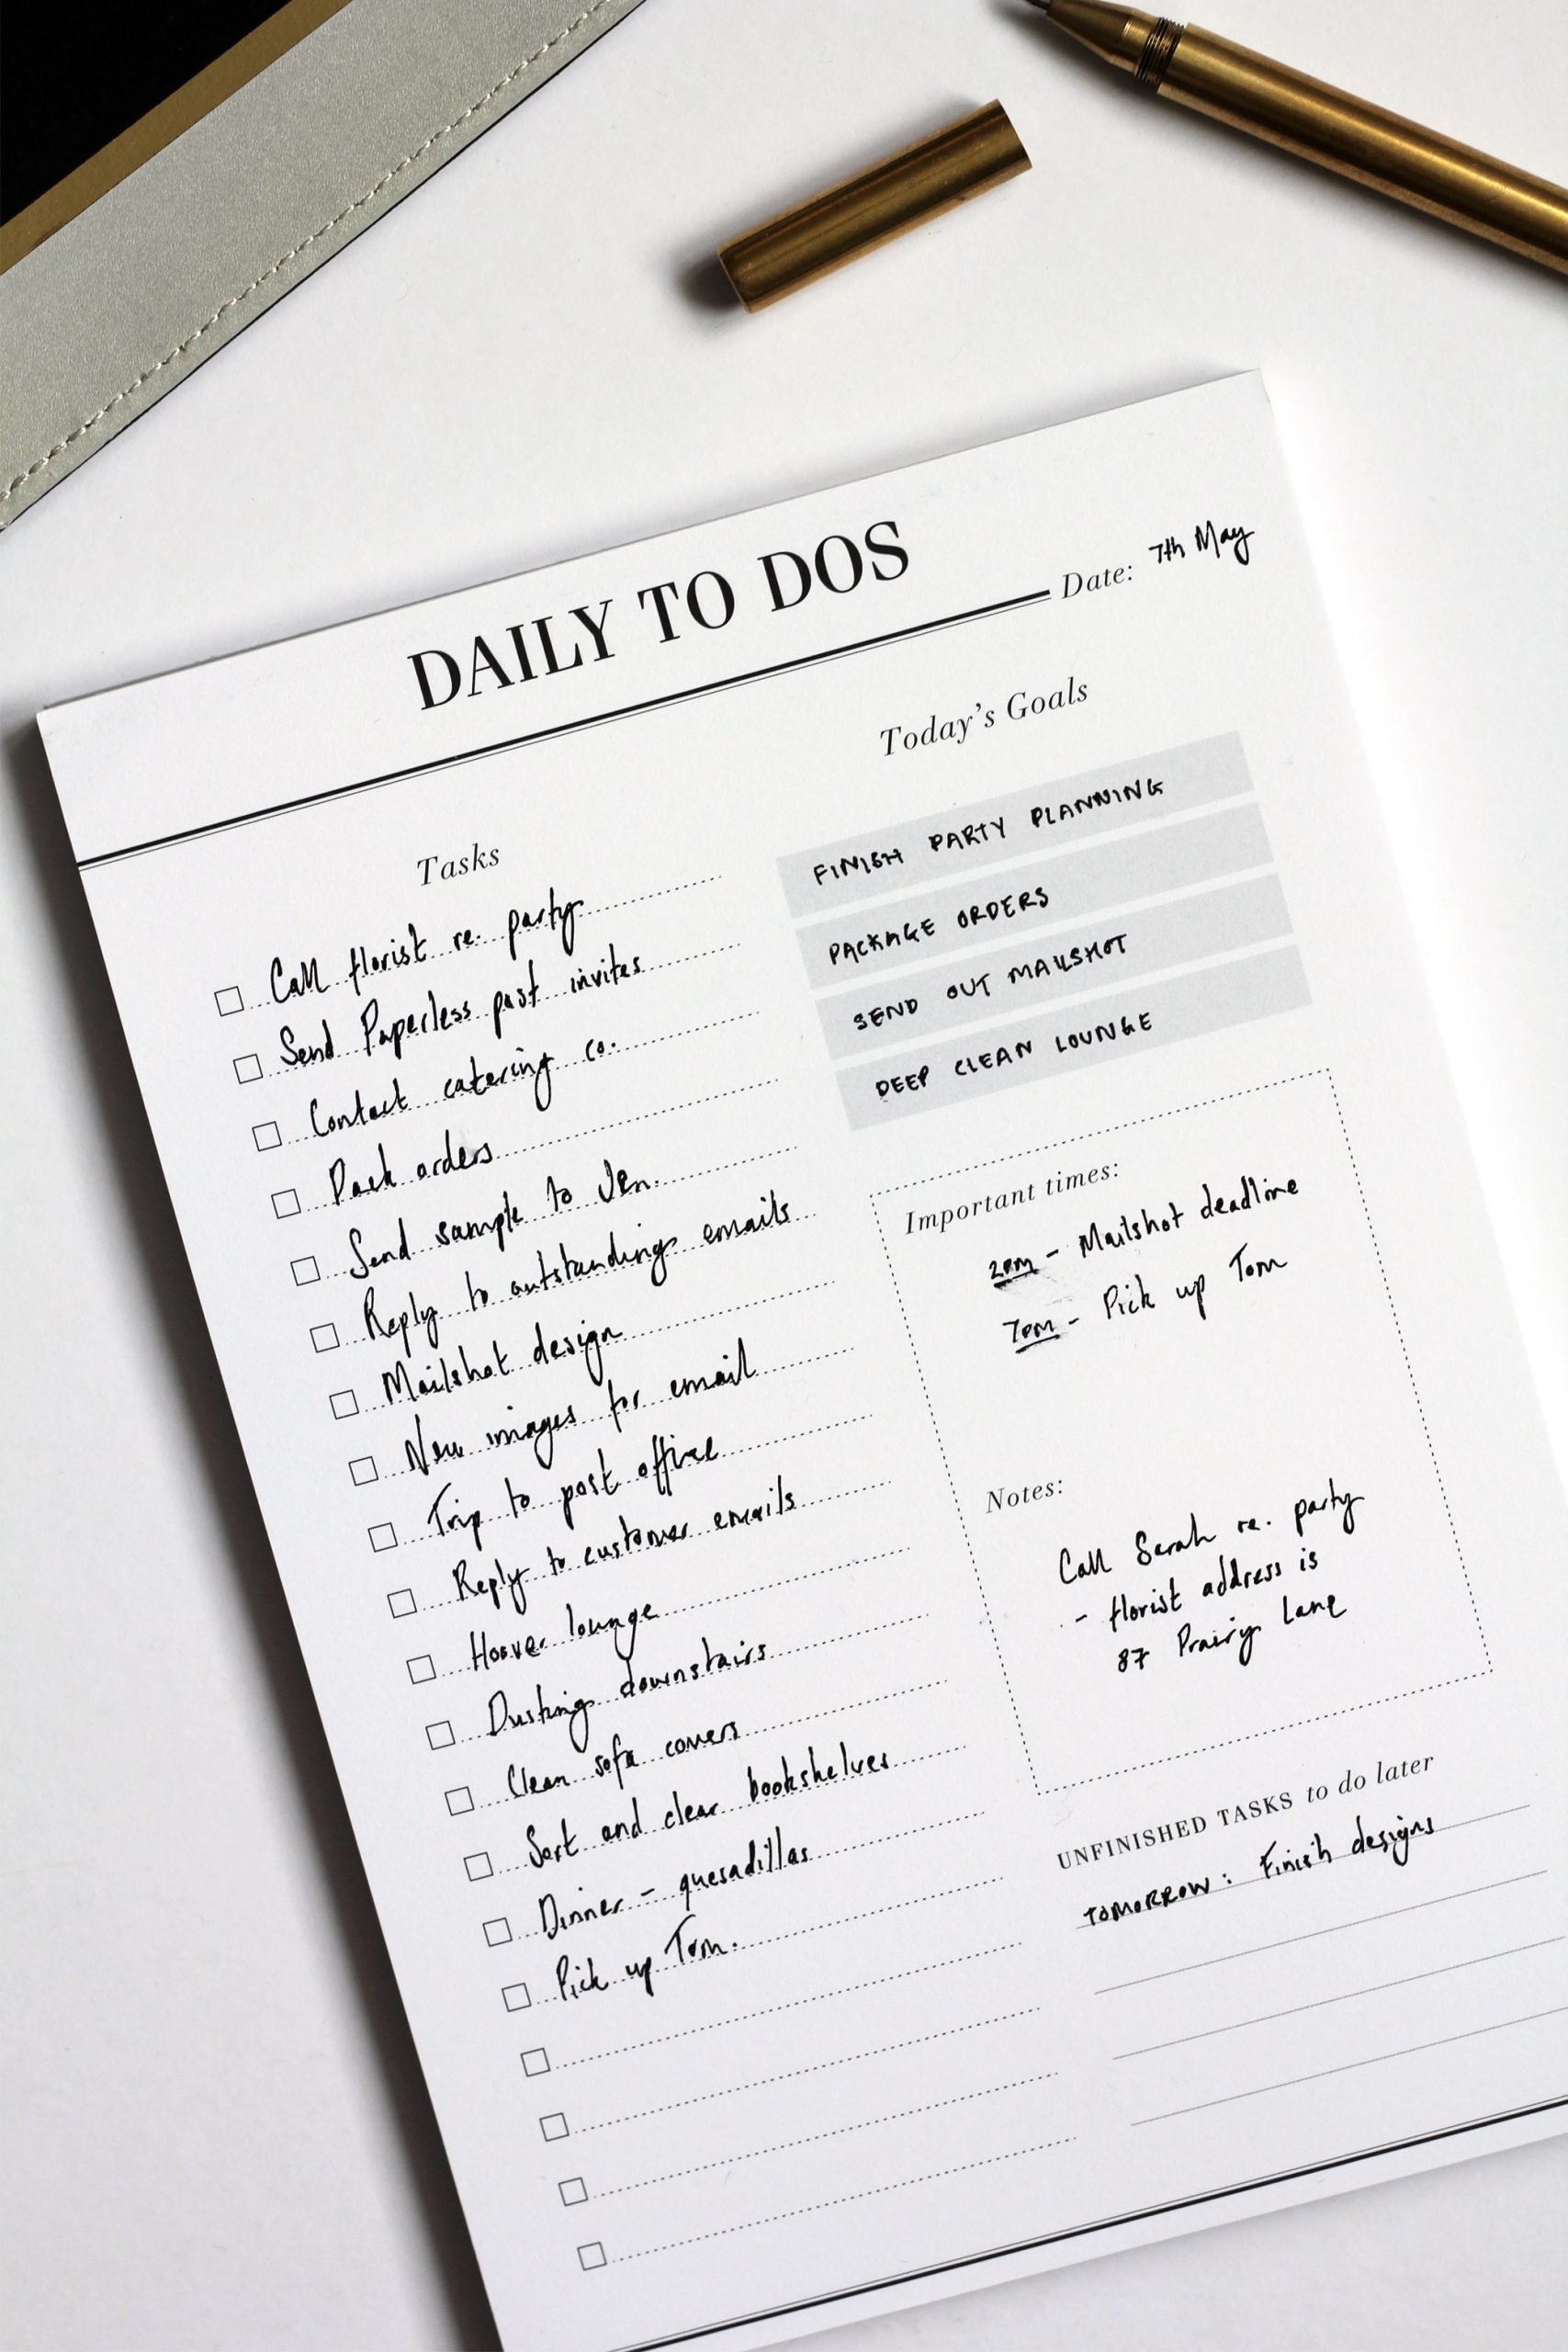 DAILY TO DOS
Date: 7th May
Tasks
Call florist re. party
Send Paperless post invites
Contact catering co.
Pack orders
Send sample to Jen.
Reply to outstanding emails
Mailshot design
New images for email
Trip to post office
Reply to customer emails
Hoover lounge
Dusting downstairs
Clean sofa covers
Sort and clear bookshelves
Dinner - quesadillas
Pick up Tom.
Today's Goals
FINISH PARTY PLANNING
PACKAGE ORDERS
SEND OUT MAILSHOT
DEEP CLEAN LOUNGE
Important times:
2pm - Mailshot deadline
7pm - Pick up Tom
Notes:
Call Sarah re. party
- florist address is
87 Prairy Lane
UNFINISHED TASKS to do later
TOMORROW: Finish designs